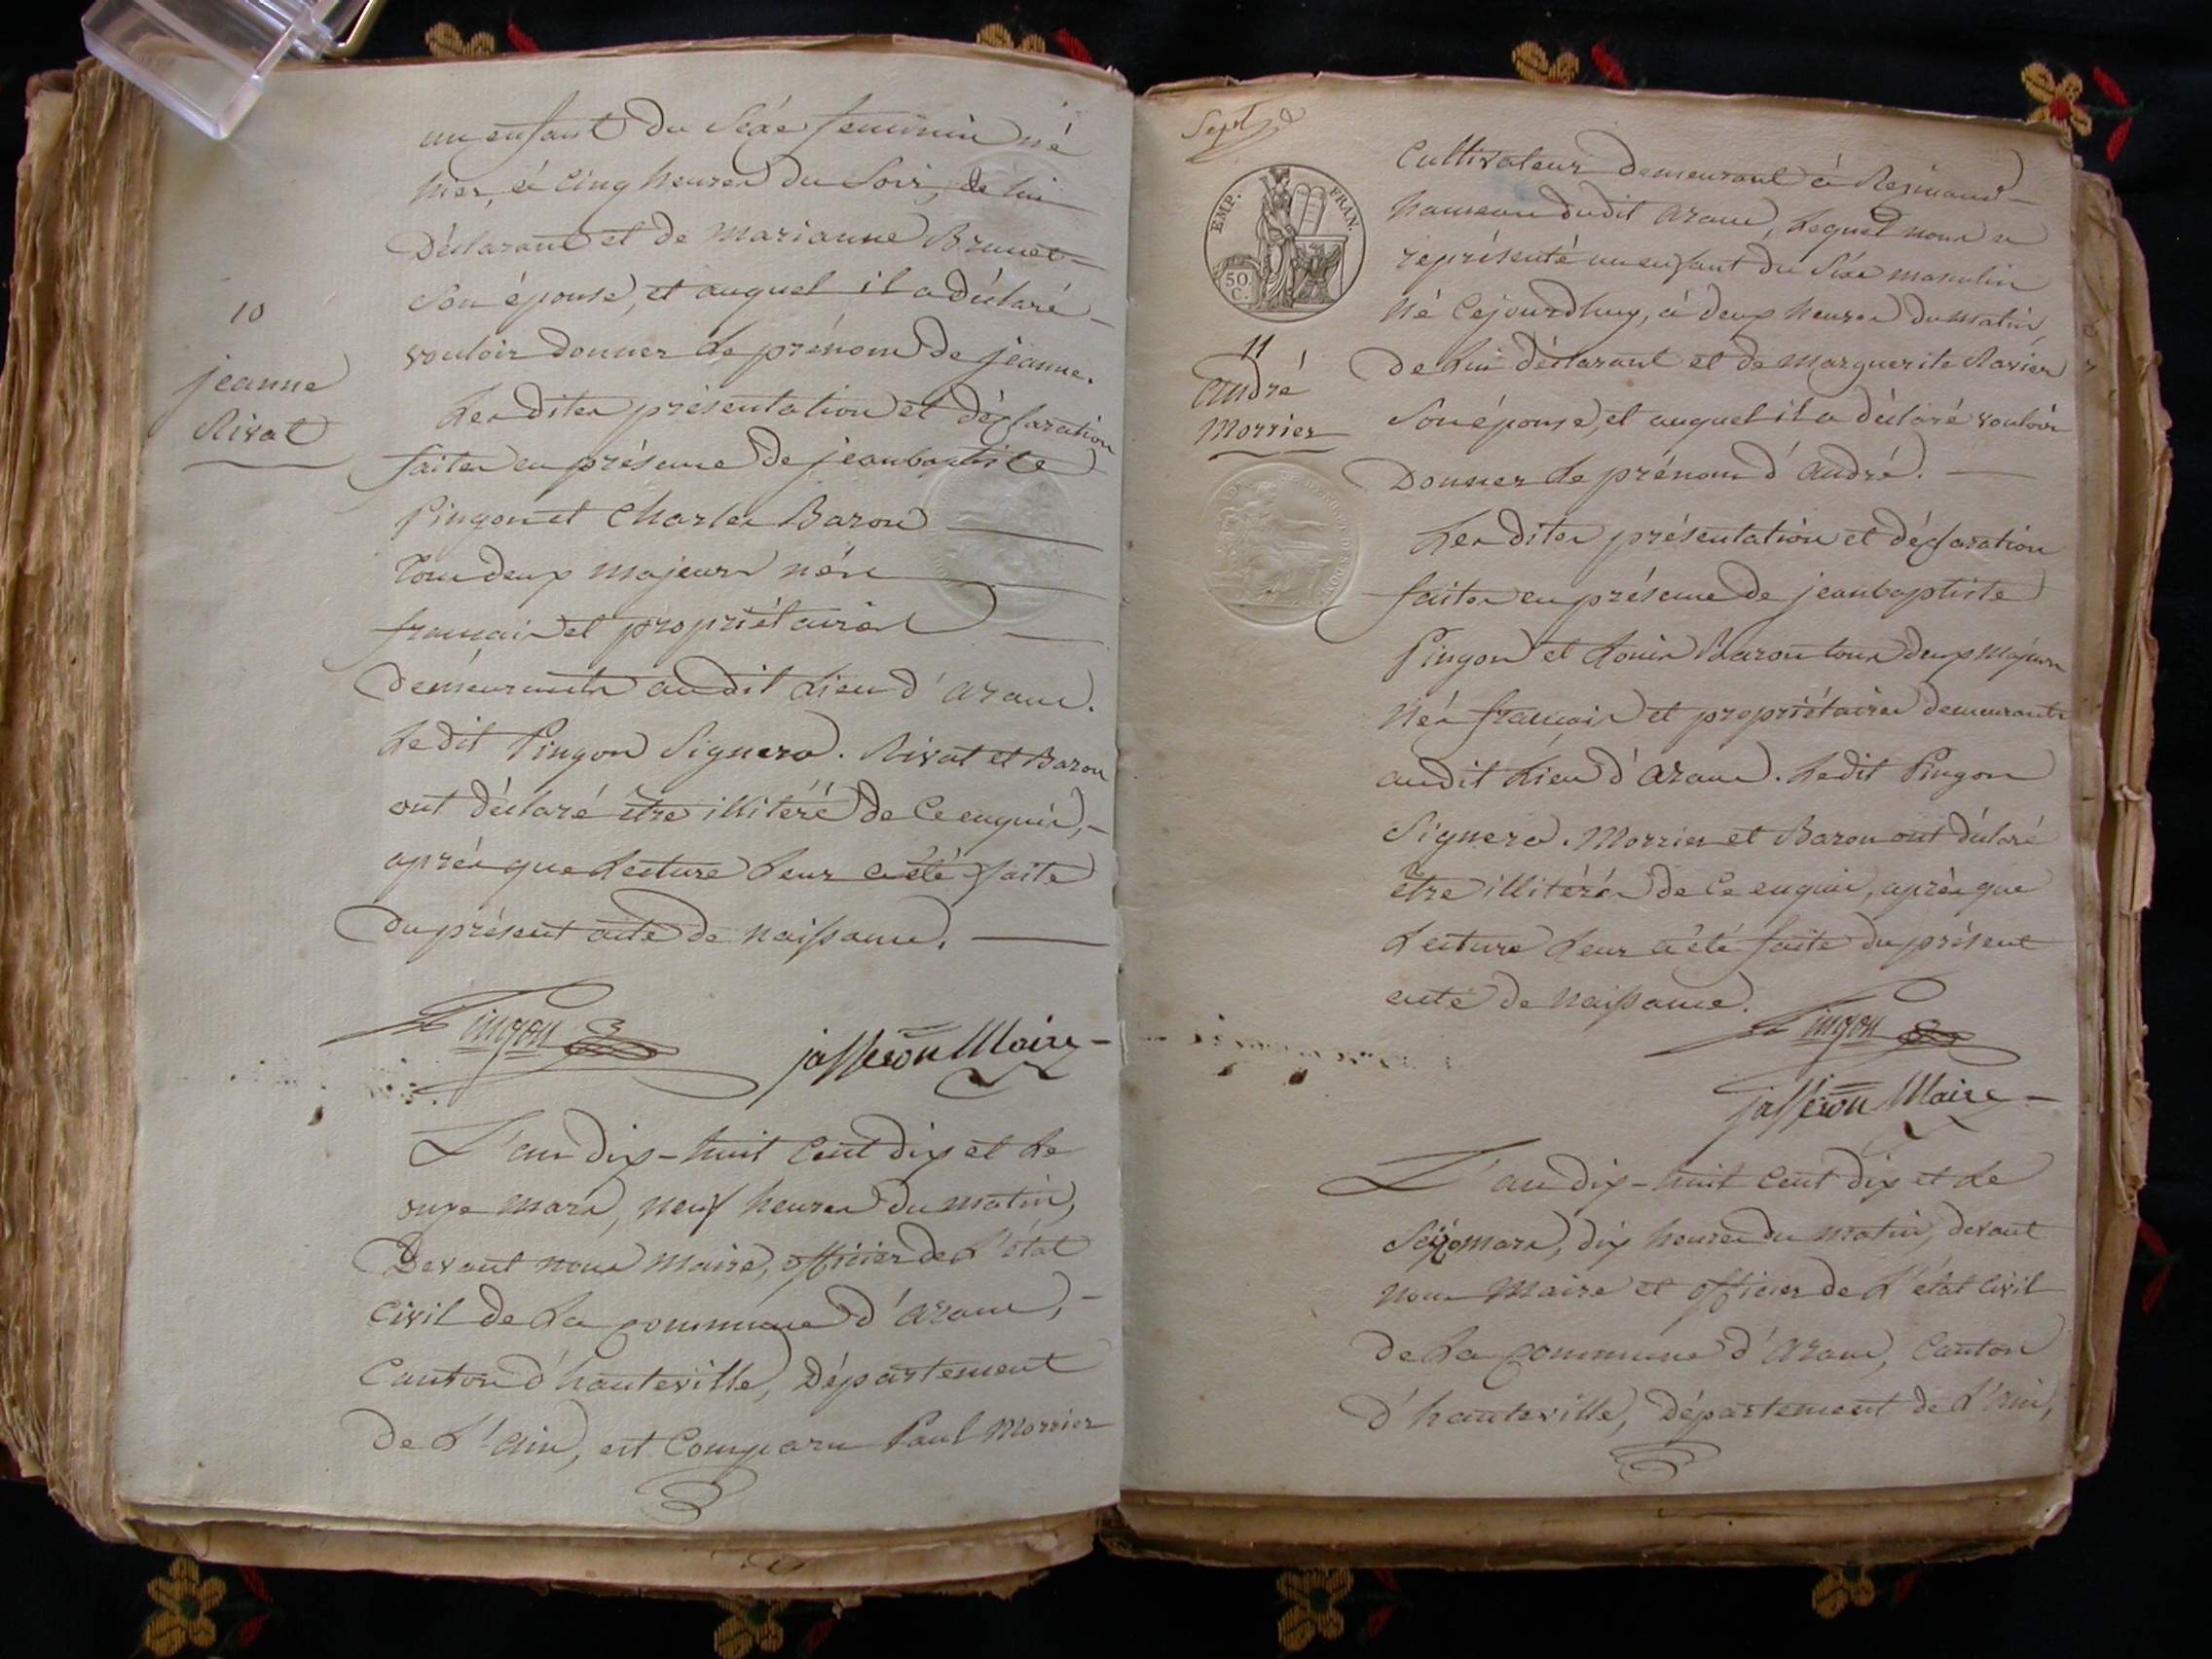 un enfant du séxe feminin né
hier, à cinq heures du soir, de lui
Déclarant et de marianne Brunet
son épouse, et auquel il a déclaré
vouloir donner le prénom de jeanne.
10
jeanne
Rivat
Les dites présentation et déclaration
faites en présence de jeanbaptiste
Pingon et Charles Baron
Tous deux majeurs nés
français et propriétaires
demeurants audit Lieu d'aranc.
Ledit Pingon signera. Rivat et Baron
ont déclaré être illitéré de ce enquis,
après que Lecture Leur a été faite
du présent acte de naissance.
Pingon
jasseron Maire
L'an dix-huit cent dix et le
onze mars, neuf heures du matin,
Devant nous maire, officier de L'état
civil de La commune d'aranc,
Canton d'hauteville, Département
de L'ain, est comparu Paul Morrier
Sept
EMP. FRAN.
50.
C.
11
André
Morrier
Cultivateur demeurant à
hameau dudit aranc, Lequel nous a
représenté un enfant du séxe masculin
né cejourdhuy, à deux heures du matin,
de Lui déclarant et de Marguerite Ravier
son épouse, et auquel il a déclaré vouloir
Donner le prénom d'andré.
Les dites présentation et déclaration
faites en présence de jeanbaptiste
Pingon et Louis Baron tous deux Majeurs
nés français et propriétaires demeurants
audit Lieu d'aranc. Ledit Pingon
signera. Morrier et Baron ont déclaré
être illitérés de ce enquis, après que
Lecture Leur a été faite du présent
acte de naissance.
Pingon
jasseron Maire
L'an dix-huit cent dix et le
seize mars, dix heures du matin, devant
nous Maire et officier de L'état civil
de La commune d'aranc, Canton
d'hauteville, Département de L'ain,